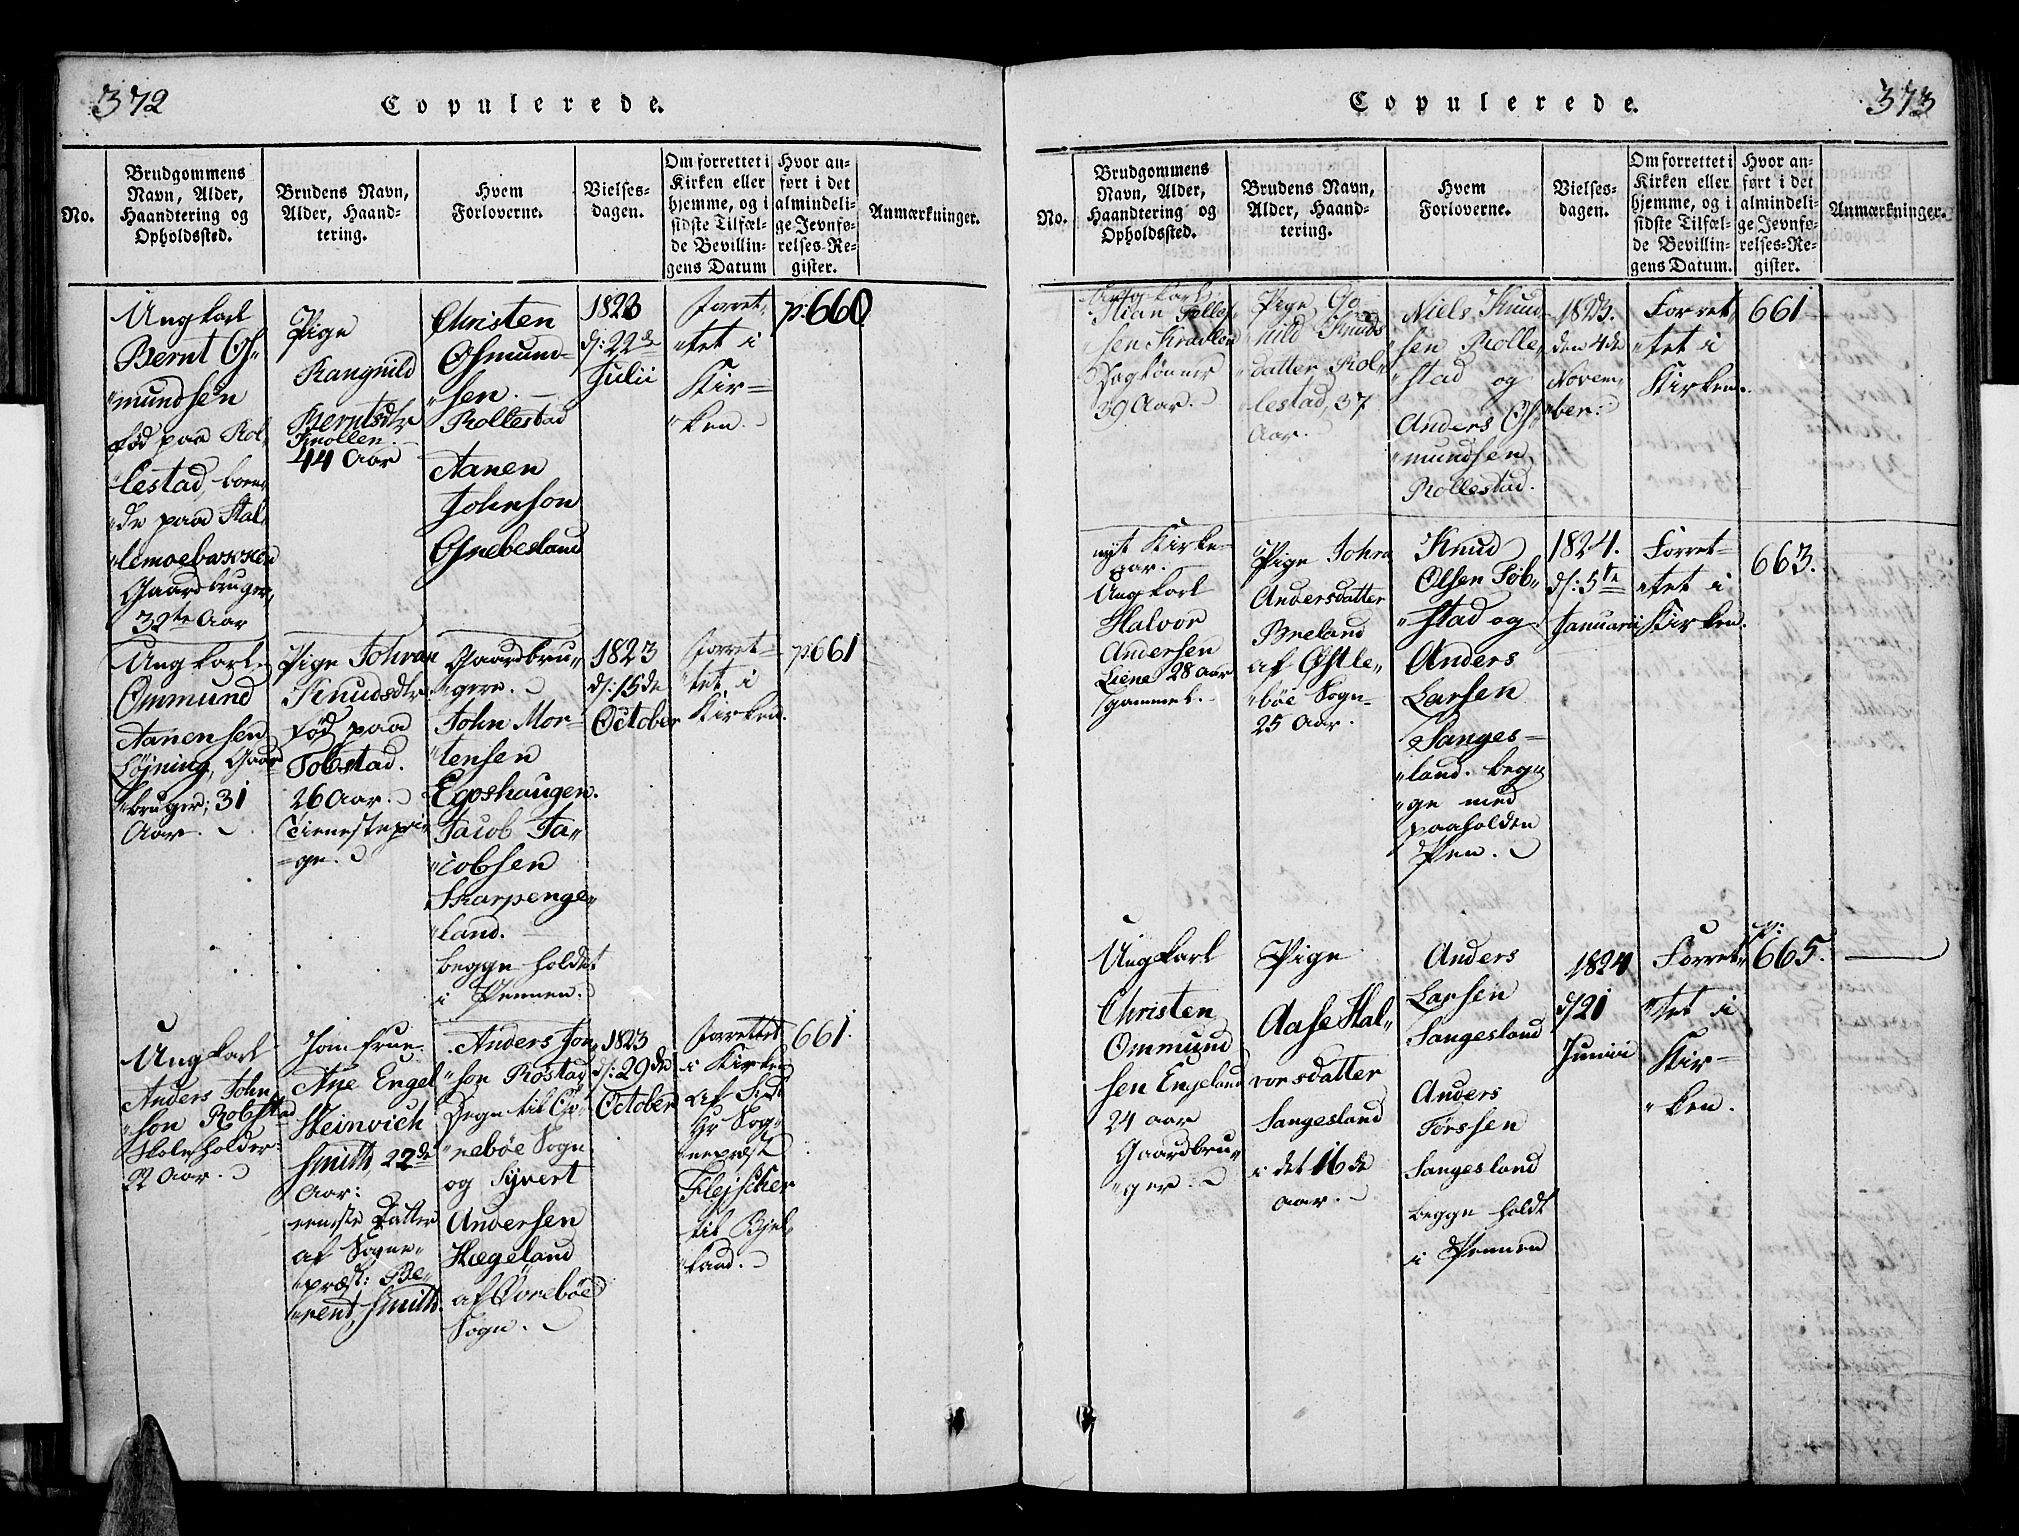 372
Copulerede.
No.
Brudgommens
Navn, Alder,
Haandtering og
Opholdssted.
Brudens Navn,
Alder, Haand-
tering.
Hvem
Forloverne.
Vielses-
dagen.
Om forrettet i
Kirken eller
hjemme, og i
sidste Tilfæl-
de Bevillin-
gens Datum
Hvor an-
ført i det
almindeli-
ge Jevnfø-
relses-Re-
gister.
Anmærkninger.
Ungkarl
Bernt Os-
mundsen
fød paa Rol-
lestad, boen-
de paa Stal-
lemoebakken
Gaardbruger,
32te Aar
Pige
Rangnild
Berntsdtr
Knollen.
44 Aar
Christen
Osmund-
sen.
Rollestad
Aanen
Johnson
Osnebesland
1823
d: 22de
Julii
forret-
tet i
Kir-
ken.
p: 660
Ungkarl
Ommund
Aanensen
Løjning, Gaard
bruger; 31
Aar.
Pige Johran
Knudsdtr
fød paa
Tobstad.
26 Aar.
Tienestepi-
ge.
Gaardbru-
gere.
John Mor-
tensen
Egoshaugen.
Jacob Ja-
cobsen
Skarpenge-
land.
begge holdt
i Pennen.
1823
d: 15de
October
forret-
tet i
Kirken.
p: 661
Ungkarl
Anders John-
son Robstad
Skoleholder
22 Aar.
Jomfrue
Ane Engel
Heinrich
Smith, 22de
Aar:
eeneste Datter
af Sogne-
præst: Be-
rent, Smith.
Anders Jon-
son Rostad
Degn til Ø-
nebøe Sogn
og Syvert
Andersen
Hægeland
af Örebøe
Sogn.
1823
d: 29de
October
forrettet
i Kirken
af
Hr Sog-
nepræst
Flejscher
til Bjel-
land.
661.
373
Copulerede.
No.
Brudgommens
Navn, Alder,
Haandtering og
Opholdssted.
Brudens Navn,
Alder, Haand-
tering.
Hvem
Forloverne.
Vielses-
dagen.
Om forrettet i
Kirken eller
hjemme, og i
sidste Tilfæl-
de Bevillin-
gens Datum.
Hvor an-
ført i det
almindeli-
ge Jevnfø-
relses-Re-
gister.
Anmærkninger.
Ungkarl
Stian Tellef
sen
39 Aar.
Pige Go-
nild Knuds
datter Rol-
lestad, 37
Aar.
Niels Knud
sen Rolle-
stad og
Anders Os-
mundsen
Rollestad.
1823.
den 4de
Novem-
ber:
Forret-
tet i
Kirken.
661
nyt Kirke-
aar.
Ungkarl
Halvor
Andersen
Liene 28 Aar
gammel.
Pige Johra
Andersdatter
Breland
af Østle-
bøe Sogn
25 Aar.
Knud
Olsen Tob-
stad og
Anders
Larsen
Sanges-
land. beg-
ge med
paaholden
Pen.
1824.
d: 5te
Januarii
Forret-
tet i
Kirken.
663.
Ungkarl
Christen
Ommund
sen Engeland
24 aar
Gaardbru-
ger
Pige
Aase Hal-
vorsdatter
Sangesland
i det 16de
aar.
Anders
Larsen
Sangesland
Anders
Torssen
Sangesland
begge holdt
i Pennen
1824
d 21
Junii
Forret-
tet i
Kir-
ken.
p:
665.